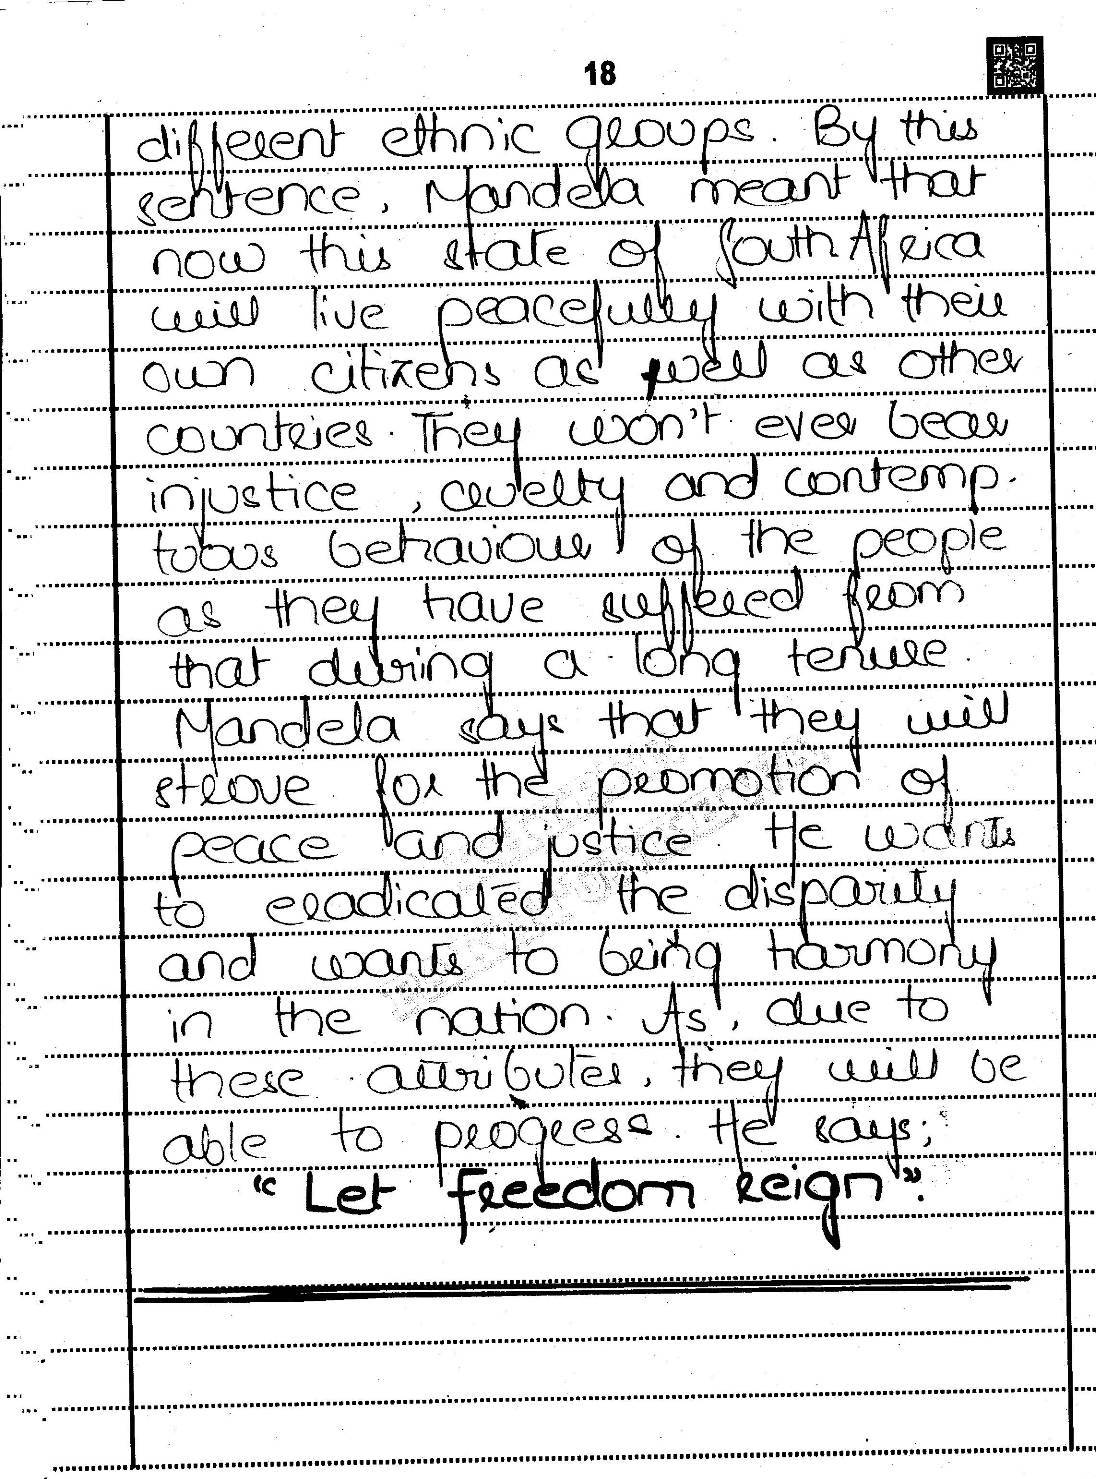 18
different ethnic groups. By this
sentence, Mandela meant that
now this state of South Africa
will live peacefully with their
own citizens as well as other
countries. They won't ever bear
injustice, cruelty and contemp.
tuous behaviour of the people
as they have suffered from
that during a long tenure.
Mandela says that they will
strove for the promotion of
peace and justice. He wants
to eradicated the disparity
and wants to being harmony
in the nation. As, due to
these attributes, they will be
able to progress. He says;
"Let freedom reign".